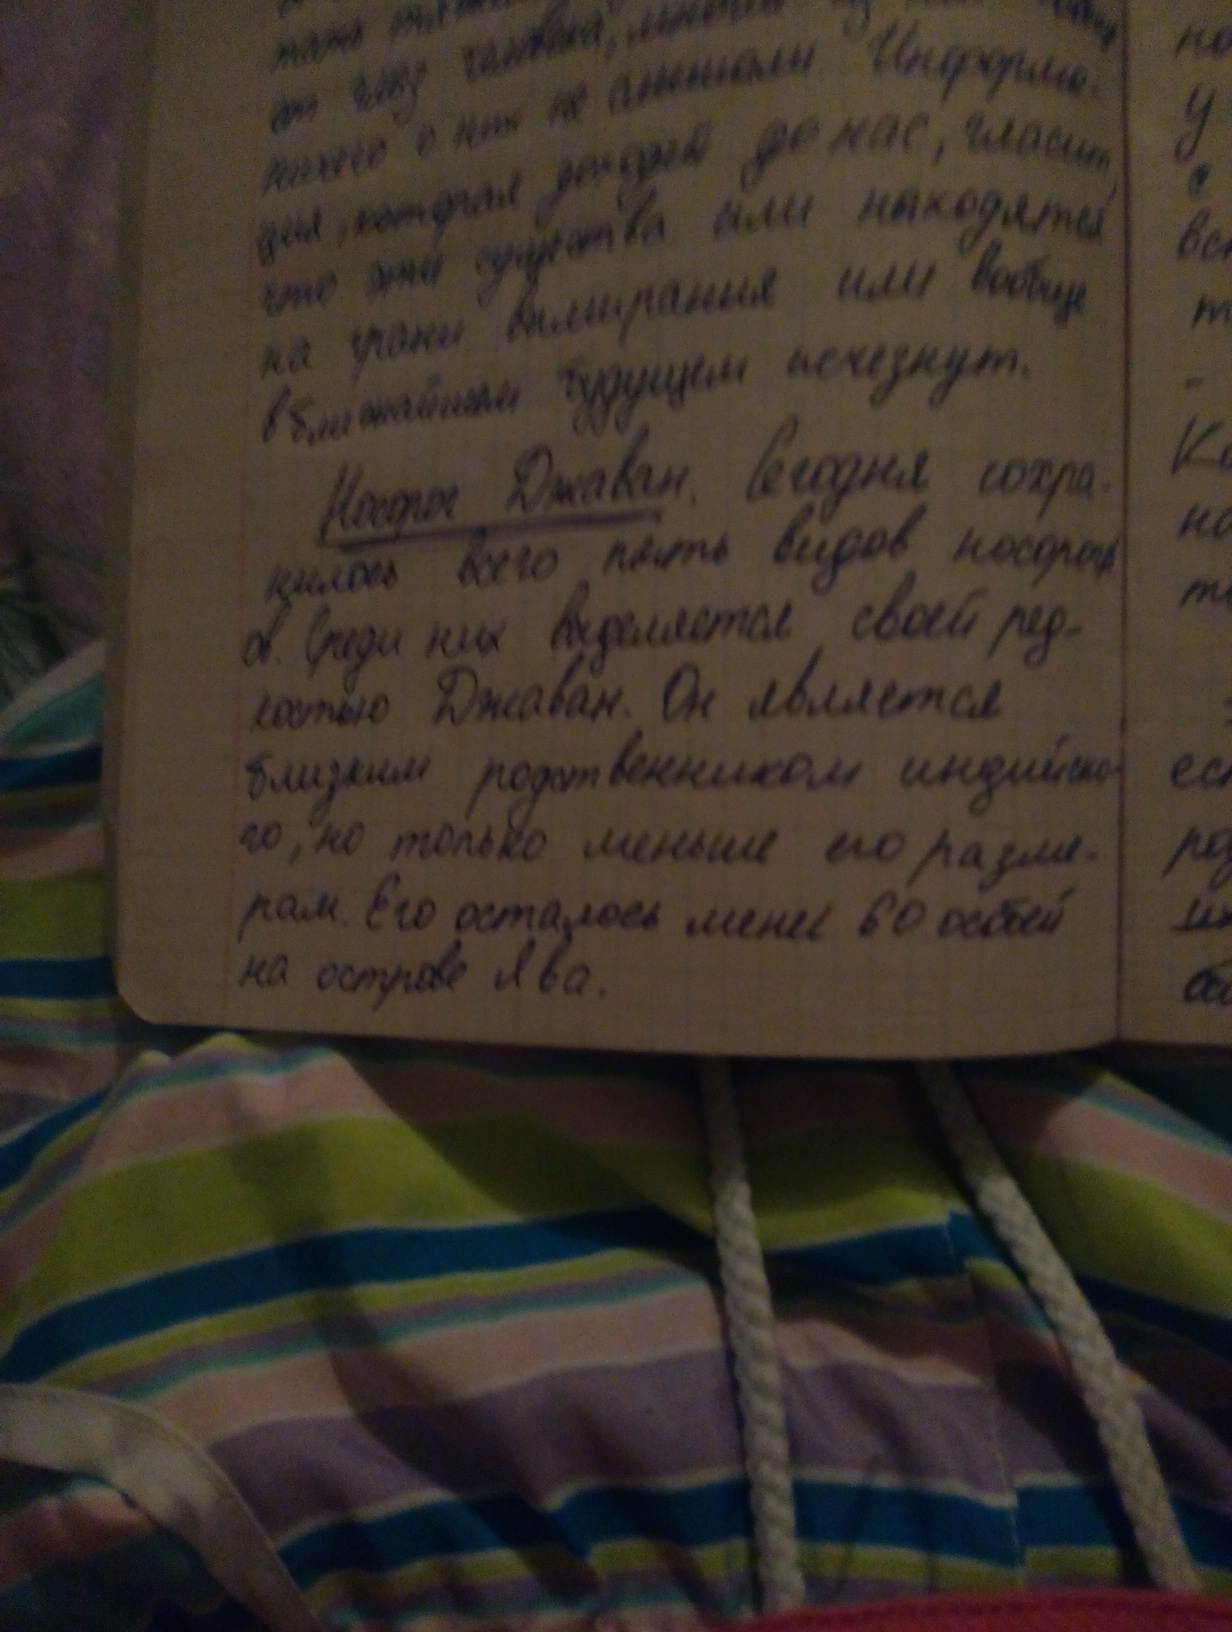 от глаз человека, многие из
ничего о них не слышали. Информа-
ция, которая доходит до нас, гласит,
что эти существа или находятся
на грани вымирания или вообще
в ближайшем будущем исчезнут.
Носорог Джаван. Сегодня сохра-
нилось всего пять видов носорогов
в. Среди них выделяется своей ред-
костью Джаван. Он является
близким родственником индийско-
го, но только меньше его разме-
рам. Его осталось менее 60 особей
на острове Ява.
у
с
т
-